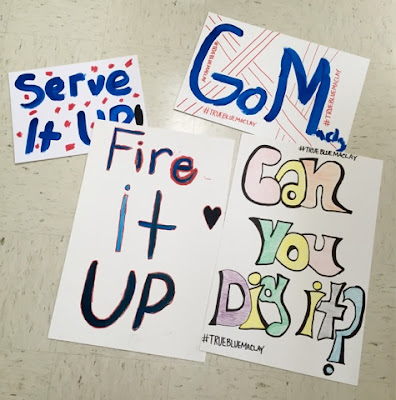 Serve
It UP!
Go M
aclay
#TRUEBLUEMACLAY
#TRUEBLUEMACLAY
#TRUEBLUEMACLAY
Fire
it
UP
#TRUEBLUEMACLAY
Can
You
Dig it?
#TRUEBLUEMACLAY